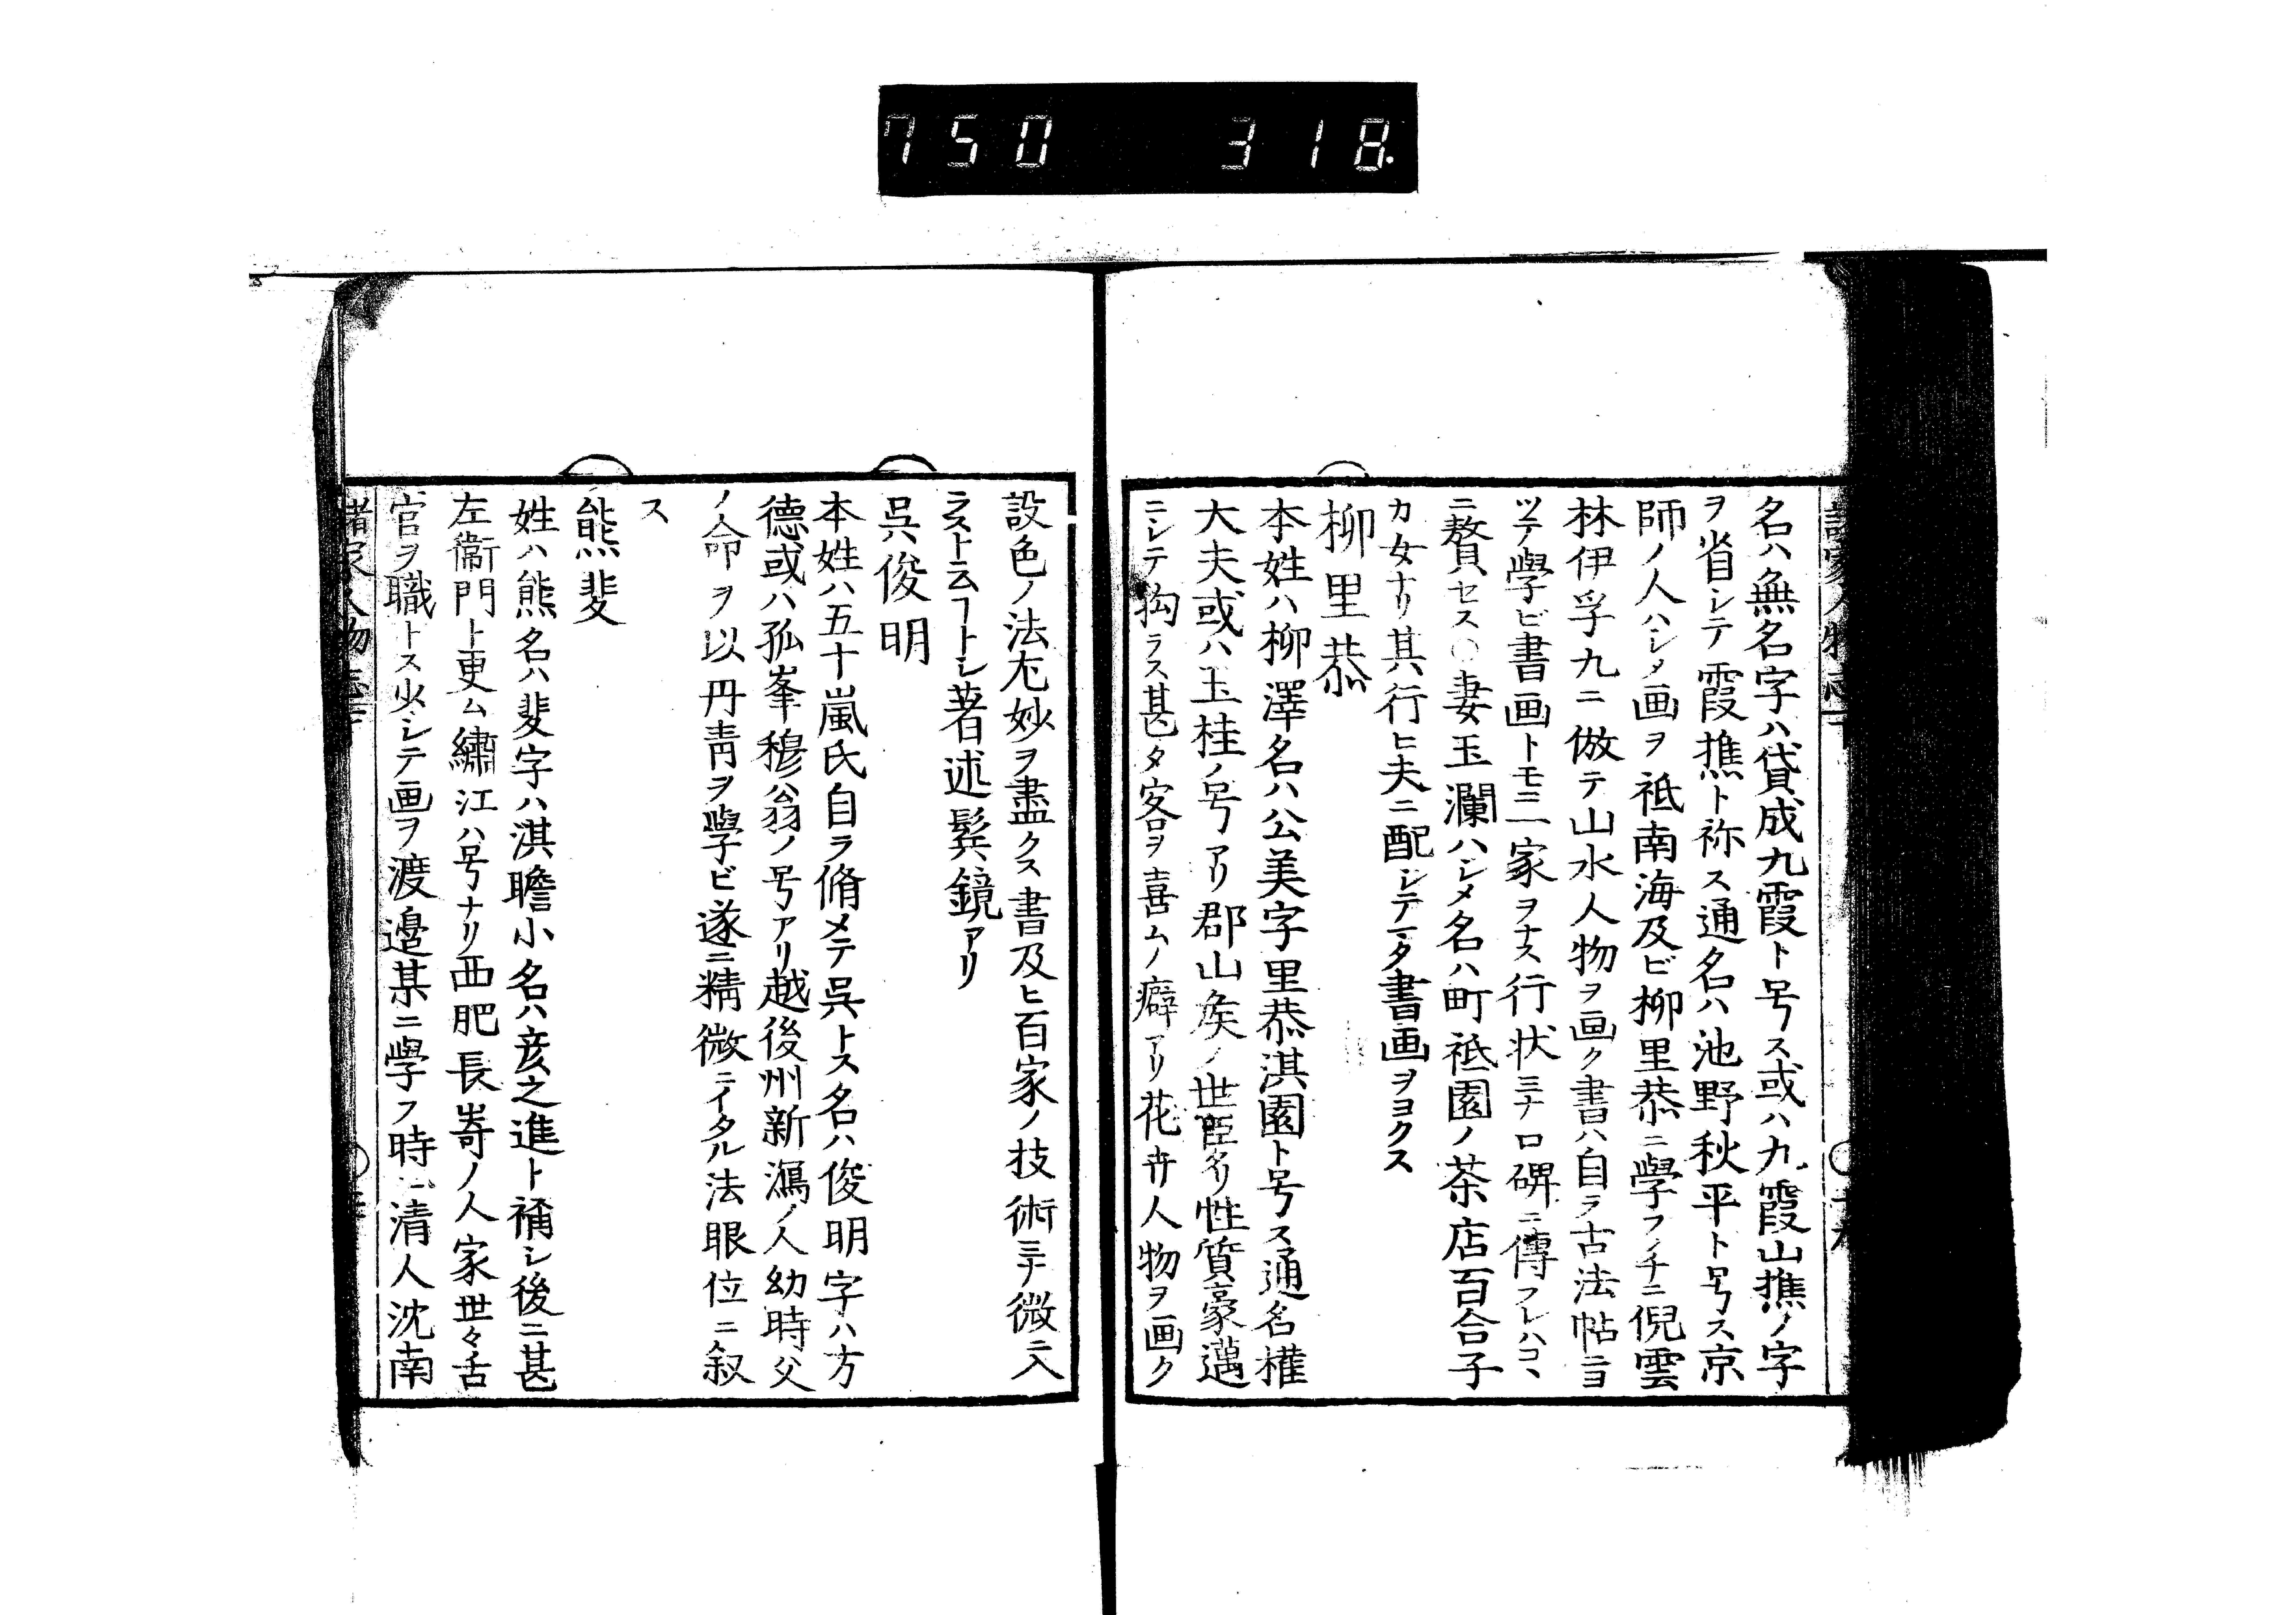 750 318
名ハ無名字ハ貸成九霞ト号ス或ハ九霞山樵ノ字
ヲ省シテ霞樵ト称ス通名ハ池野秋平ト号ス京
師ノ人ハシメ画ヲ祗南海及ビ柳里恭ニ學フノチニ倪雲
林伊孚九ニ倣テ山水人物ヲ画ク書ハ自ラ古法帖ニヨ
ツテ學ビ書画トモニ一家ヲナス行状ミナ口碑ニ傳フレハコヽ
ニ贅セス○妻玉瀾ハシメ名ハ町祗園ノ茶店百合子
カ女ナリ其行ヒ夫ニ配シテマタ書画ヲヨクス
柳里恭
本姓ハ柳澤名ハ公美字里恭淇園ト号ス通名權
大夫或ハ玉桂ノ号アリ郡山矦ノ世臣タリ性質豪邁
ニシテ拘ラス甚タ客ヲ喜ムノ癖アリ花卉人物ヲ画ク
設色ノ法尤妙ヲ盡クス書及ヒ百家ノ技術ミナ微ニ入
ラスト云フヿナシ著述髹鏡アリ
呉俊明
本姓ハ五十嵐氏自ラ脩メテ呉トス名ハ俊明字ハ方
德或ハ孤峯穆翁ノ号アリ越後州新潟ノ人幼時父
ノ命ヲ以丹青ヲ學ビ遂ニ精微ニイタル法眼位ニ叙
ス
熊斐
姓ハ熊名ハ斐字ハ淇瞻小名ハ彦之進ト稱シ後ニ甚
左衞門ト更ム繡江ハ号ナリ西肥長崎ノ人家世々舌
官ヲ職トス少シテ画ヲ渡邉某ニ學フ時ニ清人沈南
諸家人物志下